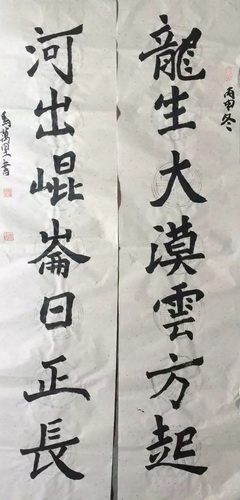 丙申冬
龍生大漠雲方起
河出崐崙日正長
馬萬里書